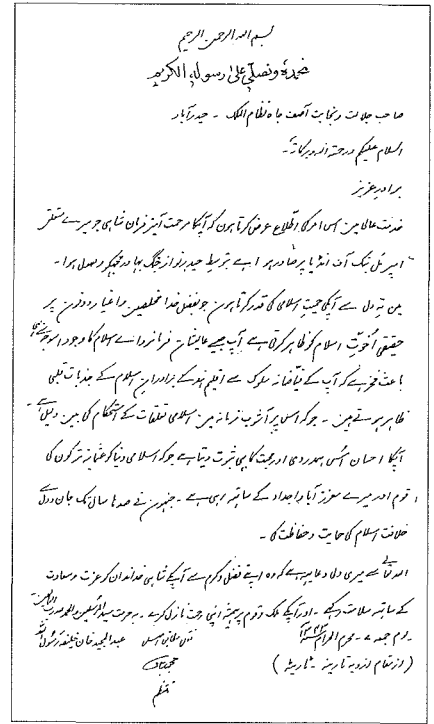 بسم الله الرحمن الرحیم
نحمدہ ونصلی علی رسولہ الکریم
صاحب جلالت ونجابت آصف جاہ نظام الملک ۔ حیدرآباد
السلام علیکم ورحمۃ اللہ وبرکاتہ ۔
برادر عزیز
خدمت عالی مین اس امر کی اطلاع عرض کرتا ہون کہ آپکا مرحمت آمیز فرمان شاہی جو میرے متعلق
امپریل بنک آف انڈیا پر صادر ہوا ہے بتوسط حیدر نواز جنگ بہادر مجھکو وصول ہوا ۔
مین تہ دل سے آپکی حمیت اسلامی کی قدر کرتا ہون جو بفضل خدا مخلصین و اغیار دونون پر
حقیقی اخوت اسلام کو ظاہر کرتی ہے آپ جیسے عالیشان فرمانروائے اسلام کا وجود
باعث فخر ہے کہ آپ کے سلوک سے اقلیم ہند کے برادران اسلام کے جذبات قلبی
ظاہر ہوتے ہین ۔ جو کہ اس پر آشوب زمانہ مین اسلامی تعلقات کے استحکام کی بین دلیل ہے ۔
آپکا احسان اُس ہمدردی اور محبت کا بھی ثبوت دیتا ہے جو کہ اسلامی دنیا کو عثمانیہ ترکون کی
قوم اور میرے معزز آبا و اجداد کے ساتھ رہی ہے ۔ جنہون نے صدہا سال تک جان و دل سے
خلافت اسلام کی حمایت و حفاظت کی ۔
اللہ تعالی سے میری دلی دعا یہ ہے کہ وہ اپنے فضل و کرم سے آپکے شاہی خاندان کو عزت و سعادت
کے ساتھ سلامت رکھے ۔ اور آپکے ملک و قوم پر ہمیشہ اپنی رحمت نازل کرے ۔ بہ حرمت سید المرسلین والحمد للہ رب العالمین
یوم جمعہ ۷ ۔ محرم الحرام نقل مطابق اصل عبدالمجید خان خلیفہ رسول اللہ